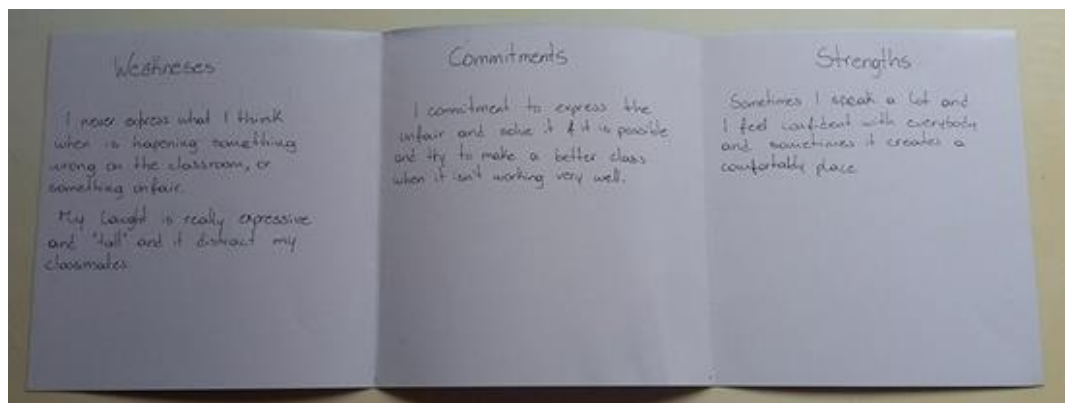 Weakneses
I never express what I think
when is hapening something
wrong on the classroom, or
something unfair.
My laught is really expressive
and "tall" and it distract my
classmates.
Commitments
I commitment to express the
unfair and solve it if it is possible
and try to make a better class
when it isn't working very well.
Strengths
Sometimes I speak a lot and
I feel confident with everybody
and sometimes it creates a
comfortably place